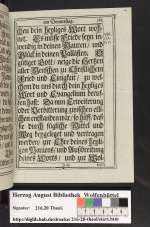 am Donnerstag.
chen dein heyliges Wort woh-
net. Es müsse Friede seyn in-
wendig in deinen Mauren / und
Glück in deinen Pallästen. O
gütiger Gott / neige die Hertzen
aller Menschen zu Christlichem
Fried und Einigkeit / zu wel-
chem du uns durch dein heyliges
Wort und Evangelium beruf-
fen hast: Da nun Erbitterung
und Verbitterung zwischen etli-
chen entstanden wär, so hilff / daß
sie durch fügliche Mittel und
Weg beygelegt und vertragen
werden / zur Ehr deines heyli-
gen Namens / und Außbreitung
deines Worts / und zur Wol-
Herzog August Bibliothek Wolfenbüttel
Signatur: 216.20 Theol.
http://diglib.hab.de/drucke/216-20-theol/start.htm